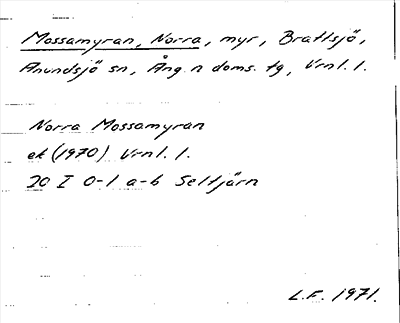 Mossamyran, Norra, myr, Brattsjö,
Anundsjö sn, Ång. n doms. tg, Vrnl. l.
Norra Mossamyran
ek (1970) Vrnl. l.
20 I 0-1 a-b Seltjärn
L.F. 1971.